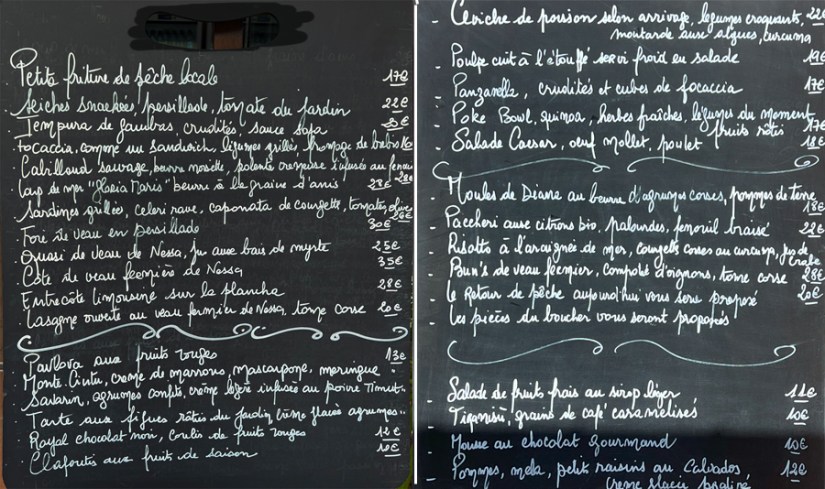 Petite friture de pêche locale 17€
Seiches snackées, persillade, tomate du jardin 22€
Tempura de gambas, crudités, sauce
Focaccia, comme un sandwich, légumes grillés, fromage de brebis 16
Cabillaud sauvage, beurre noisette, polenta crémeuse infusée au fenouil
Loup de mer "Gloria Maris" beurre à la graine d'anis 28€
Sardines grillées, celeri rave, caponata de courgette, tomates, olive
Foie de veau en persillade 30€
Quasi de veau de Nessa, jus aux bais de myrte 25€
Côte de veau fermière de Nessa 35€
Entrecôte limousine sur la plancha 28€
Lasagne ouverte au veau fermier de Nessa, tome corse 20€
Pavlova aux fruits rouges 13€
Monte Cintu, crème de marrons, mascarpone, meringue
Savarin, agrumes confits, crème légère infusée au poivre Timut
Tarte aux figues rôties du jardin, crème glacée agrumes
Royal chocolat noir, coulis de fruits rouges 12€
Clafoutis aux fruits de saison 10€
- Ceviche de poisson selon arrivage, légumes croquants, 22€
moutarde aux algues, curcuma
- Poulpe cuit à l'étouffé servi froid en salade 19€
- Panzanella, crudités et cubes de focaccia 17€
- Poke Bowl, quinoa, herbes fraîches, légumes du moment
fruits rôtis 17€
- Salade Caesar, oeuf mollet, poulet 18€
- Moules de Diane au beurre d'agrumes corses, pommes de terre
18€
- Paccheri aux citrons bio, palourdes, fenouil braisé 22€
- Risotto à l'araignée de mer, courgette corses au curcuma, jus de
crabe
- Bun's de veau fermier, compoté d'oignons, tome corse 28€
- Le Retour de pêche aujourd'hui vous sera proposé 20€
- Les pièces du boucher vous seront proposés
- Salade de fruits frais au sirop léger 11€
- Tiramisu, grains de café caramélisés 10€
- Mousse au chocolat gourmand 10€
- Pommes, mela, petit raisins au Calvados, 12€
creme glacée praliné